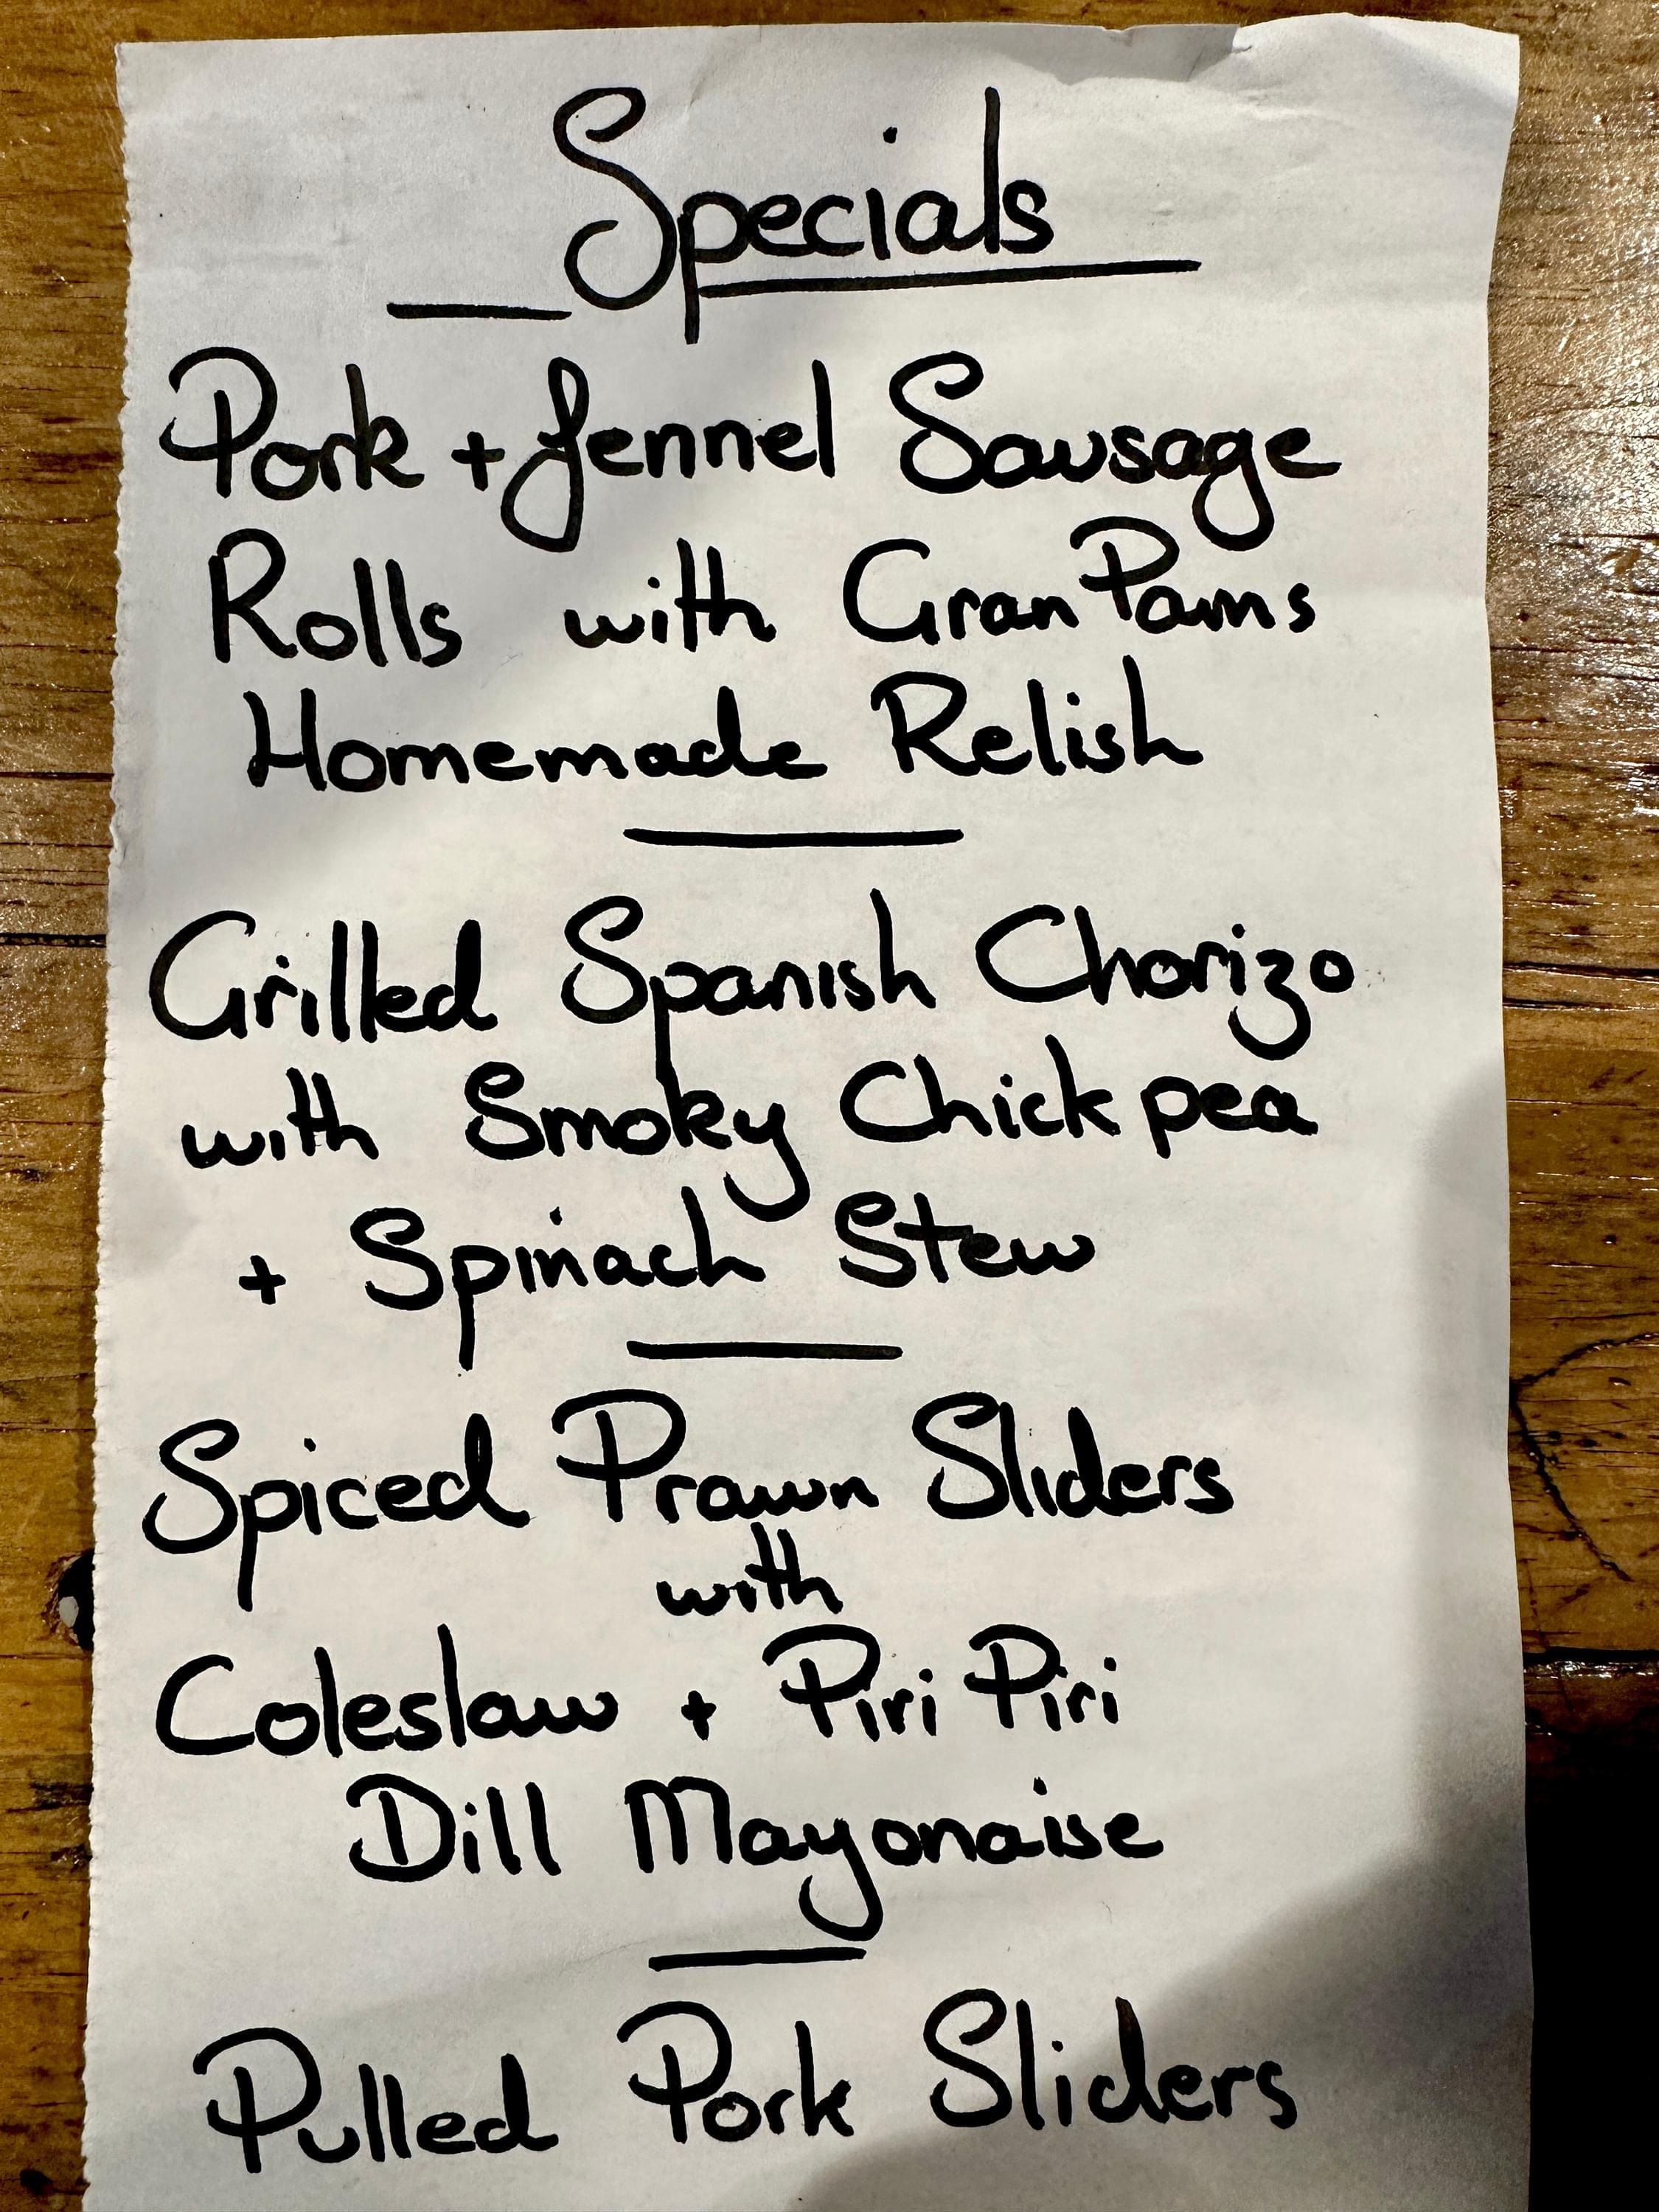 Specials
Pork + fennel Sausage
Rolls with Gran Pams
Homemade Relish
Grilled Spanish Chorizo
with Smoky Chickpea
+ Spinach Stew
Spiced Prawn Sliders
with
Coleslaw + Piri Piri
Dill Mayonaise
Pulled Pork Sliders